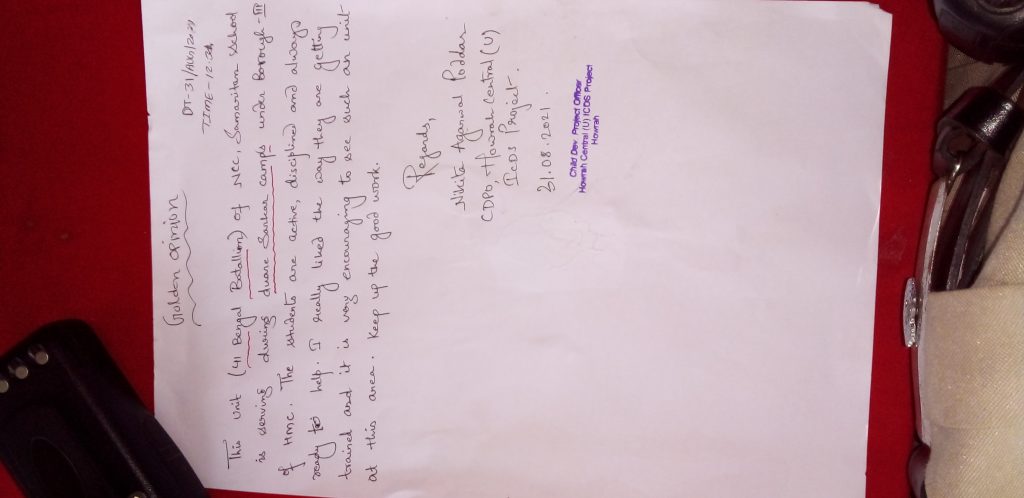 Golden opinion
DT-31/AUG/2021
TIME-12:30
This unit (41 Bengal Batallion) of NCC, Samaritan school
is serving during duare Sarkar camps under Borough-III
of HMC. The students are active, disciplined and always
ready to help. I really liked the way they are getting
trained and it is very encouraging to see such an unit
at this area. Keep up the good work.
Regards,
Nikita Agarwal Poddar
CDPO, Howrah Central (U)
ICDS Project.
31.08.2021.
Child Dev. Project Officer
Howrah Central (U) ICDS Project
Howrah